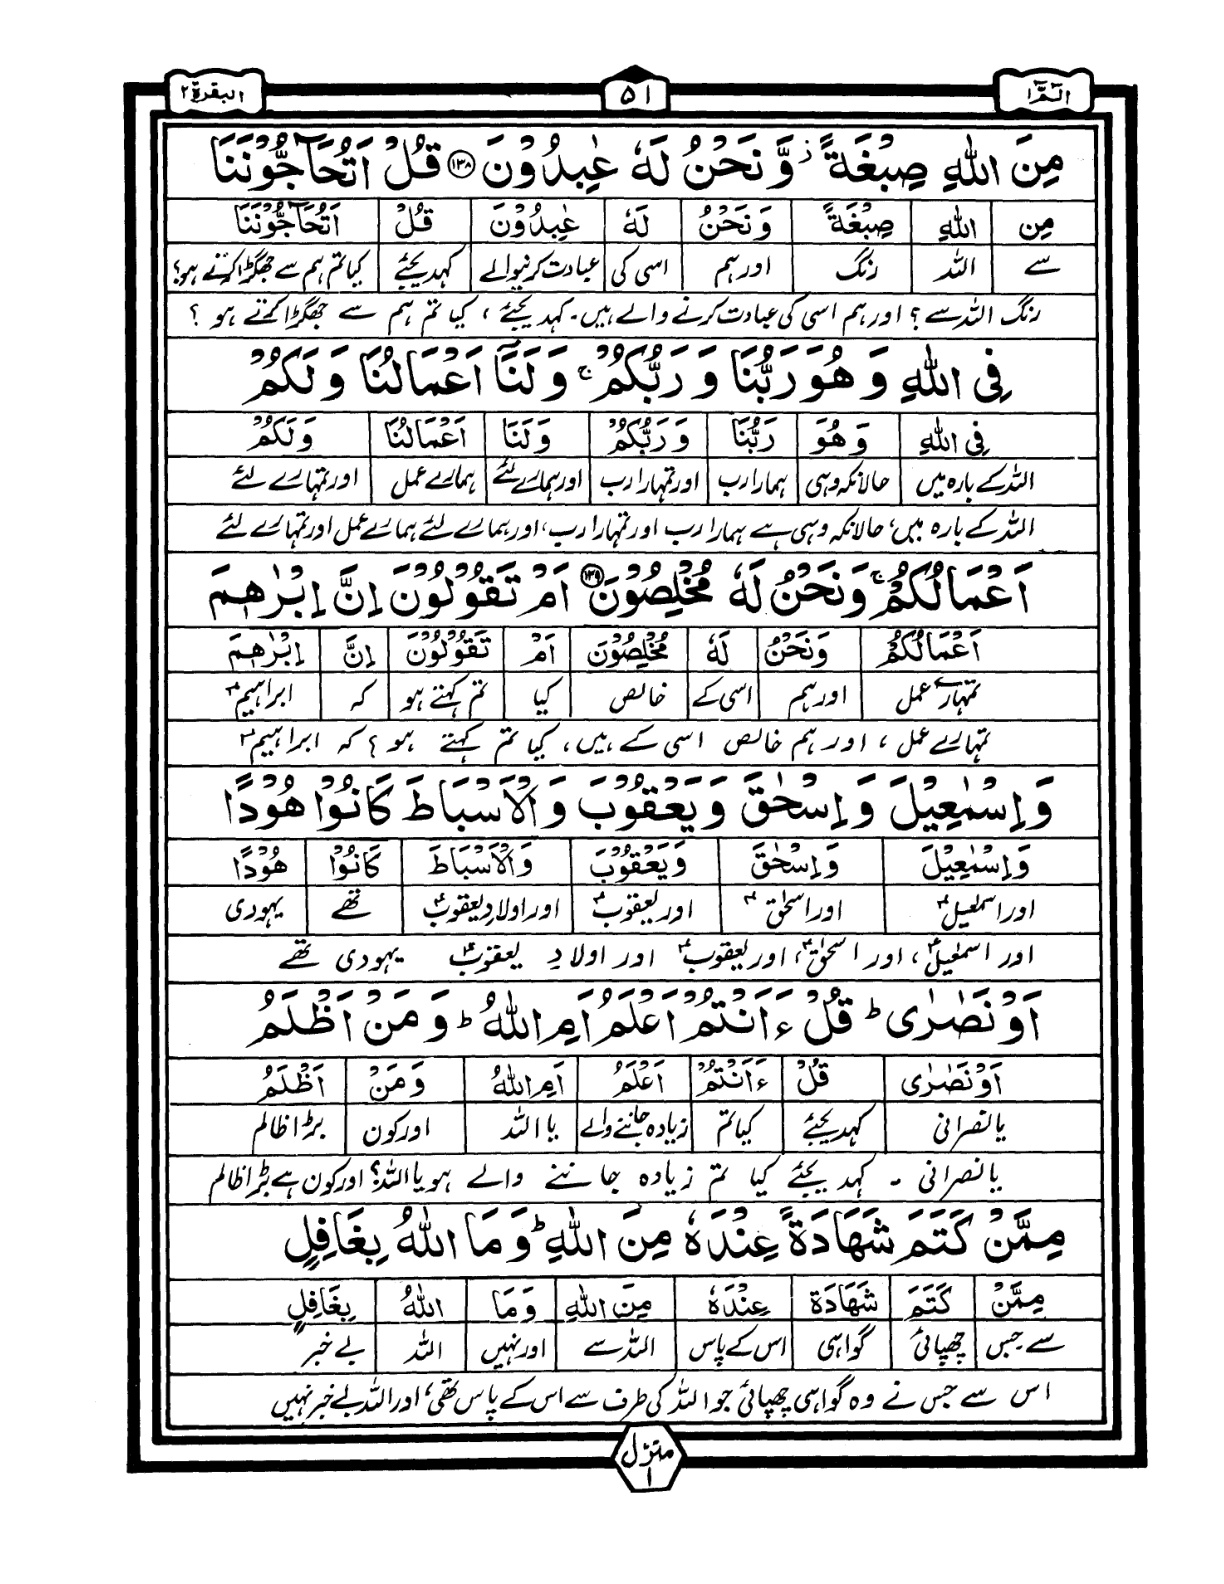 الٓمّٓ ۱
۵۱
البقرة ۲
مِنَ اللّٰهِ صِبْغَةً ز وَّ نَحْنُ لَهٗ عٰبِدُوْنَ ﴿۱۳۸﴾ قُلْ اَتُحَآجُّوْنَنَا
مِنَ اللّٰهِ صِبْغَةً وَ نَحْنُ لَهٗ عٰبِدُوْنَ قُلْ اَتُحَآجُّوْنَنَا
سے اللہ رنگ اور ہم اسی کی عبادت کرنیوالے کہدیجئے کیا تم ہم سے جھگڑا کرتے ہو؟
رنگ اللہ سے ؟ اور ہم اسی کی عبادت کرنے والے ہیں۔ کہدیجئے ، کیا تم ہم سے جھگڑا کرتے ہو ؟
فِی اللّٰهِ وَ هُوَ رَبُّنَا وَ رَبُّكُمْ ۚ وَ لَنَاۤ اَعْمَالُنَا وَ لَكُمْ
فِی اللّٰهِ وَ هُوَ رَبُّنَا وَ رَبُّكُمْ وَ لَنَا اَعْمَالُنَا وَ لَكُمْ
اللہ کے بارہ میں حالانکہ وہی ہمارا رب اور تمہارا رب اور ہمارے لئے ہمارے عمل اور تمہارے لئے
اللہ کے بارہ میں، حالانکہ وہی ہے ہمارا رب اور تمہارا رب، اور ہمارے لئے ہمارے عمل اور تمہارے لئے
اَعْمَالُكُمْ ۚ وَ نَحْنُ لَهٗ مُخْلِصُوْنَ ﴿۱۳۹﴾ اَمْ تَقُوْلُوْنَ اِنَّ اِبْرٰهٖمَ
اَعْمَالُكُمْ وَ نَحْنُ لَهٗ مُخْلِصُوْنَ اَمْ تَقُوْلُوْنَ اِنَّ اِبْرٰهٖمَ
تمہارے عمل اور ہم اسی کے خالص کیا تم کہتے ہو کہ ابراہیمؑ
تمہارے عمل ، اور ہم خالص اسی کے ہیں، کیا تم کہتے ہو ؟ کہ ابراہیمؑ
وَ اِسْمٰعِیْلَ وَ اِسْحٰقَ وَ یَعْقُوْبَ وَ الْاَسْبَاطَ كَانُوْا هُوْدًا
وَ اِسْمٰعِیْلَ وَ اِسْحٰقَ وَ یَعْقُوْبَ وَ الْاَسْبَاطَ كَانُوْا هُوْدًا
اور اسمٰعیلؑ اور اسحٰقؑ اور یعقوبؑ اور اولادِ یعقوبؑ تھے یہودی
اور اسمٰعیلؑ، اور اسحٰقؑ، اور یعقوبؑ اور اولادِ یعقوبؑ یہودی تھے
اَوْ نَصٰرٰی ؕ قُلْ ءَاَنْتُمْ اَعْلَمُ اَمِ اللّٰهُ ؕ وَ مَنْ اَظْلَمُ
اَوْ نَصٰرٰی قُلْ ءَاَنْتُمْ اَعْلَمُ اَمِ اللّٰهُ وَ مَنْ اَظْلَمُ
یا نصرانی کہدیجئے کیا تم زیادہ جاننے والے یا اللہ اور کون بڑا ظالم
یا نصرانی ۔ کہدیجئے کیا تم زیادہ جاننے والے ہو یا اللہ؟ اور کون ہے بڑا ظالم
مِمَّنْ كَتَمَ شَهَادَةً عِنْدَهٗ مِنَ اللّٰهِ ؕ وَ مَا اللّٰهُ بِغَافِلٍ
مِمَّنْ كَتَمَ شَهَادَةً عِنْدَهٗ مِنَ اللّٰهِ وَ مَا اللّٰهُ بِغَافِلٍ
سے جس چھپائی گواہی اس کے پاس اللہ سے اور نہیں اللہ بے خبر
اس سے جس نے وہ گواہی چھپائی جو اللہ کی طرف سے اس کے پاس تھی، اور اللہ بے خبر نہیں
منزل ۱